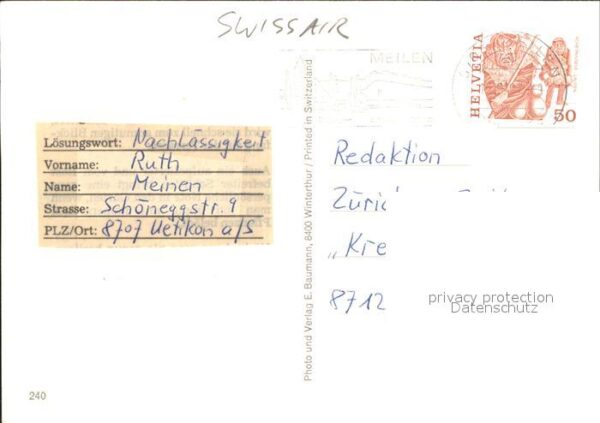 SWISSAIR
MEILEN
HELVETIA
50
Lösungswort: Nachlässigkeit
Vorname: Ruth
Name: Meinen
Strasse: Schöneggstr. 9
PLZ/Ort: 8707 Uetikon a/S
Photo und Verlag E. Baumann, 8400 Winterthur / Printed in Switzerland
Redaktion
Züric
"Kre
8712
privacy protection
Datenschutz
240